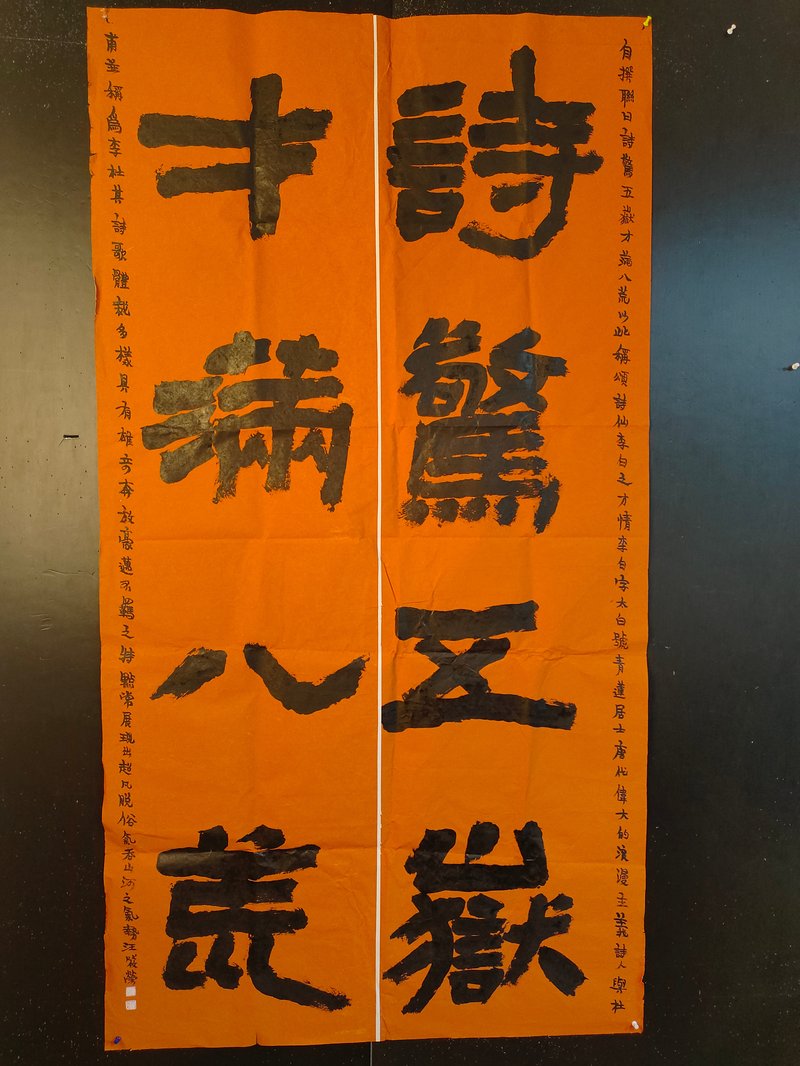 自撰聯曰詩驚五嶽才滿八荒以此稱頌詩仙李白之才情李白字太白號青蓮居士唐代偉大的浪漫主義詩人與杜
詩驚五嶽
才滿八荒
甫並稱為李杜其詩歌體裁多樣具有雄奇奔放豪邁不羈之特點常展現出超凡脫俗氣吞山河之氣勢汪